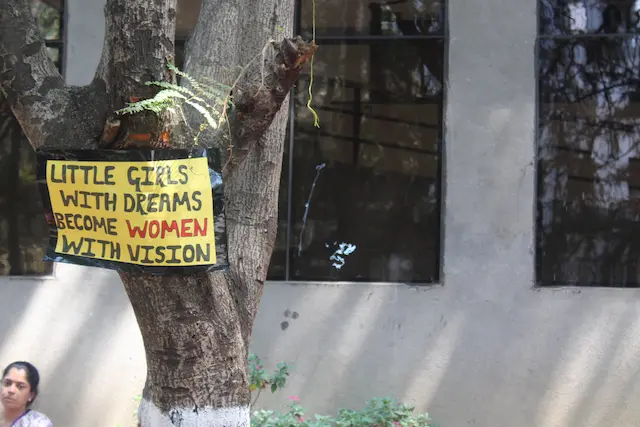 LITTLE GIRLS
WITH DREAMS
BECOME WOMEN
WITH VISION